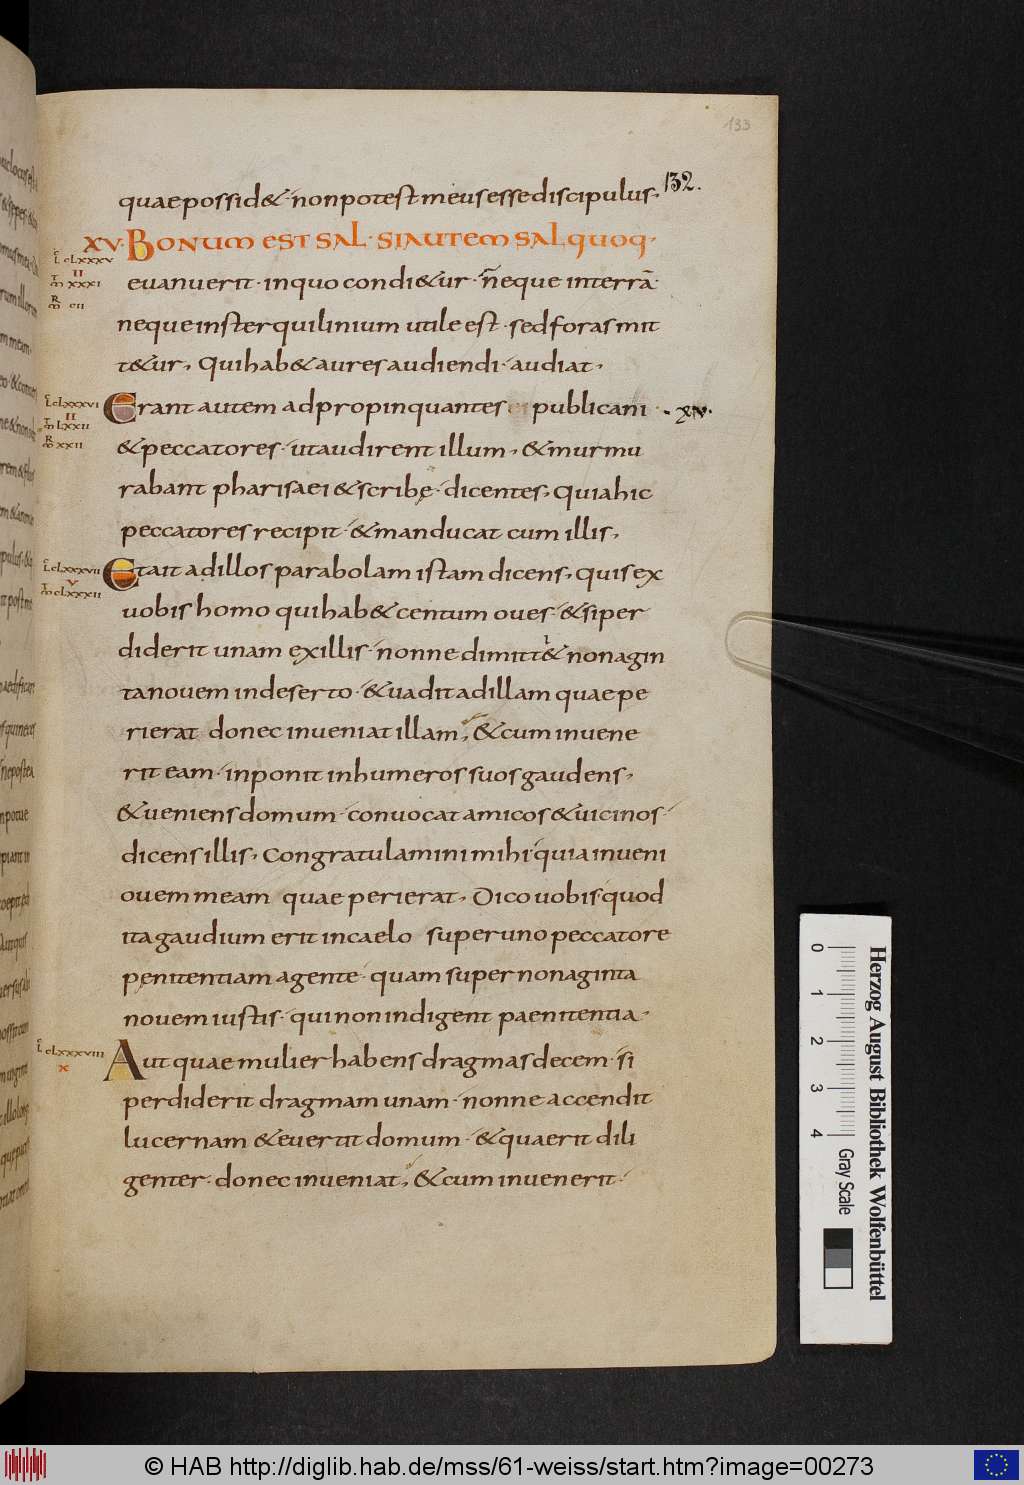 133
132.
quae possid& · non potest meus esse discipulus ·
XV · BONUM EST SAL · SI AUTEM SAL QUOQ ·
L cLxxxv
II
m xxxi
R
m cii
euanuerit · in quo condi&ur · n̄eque in terrā ·
neque in sterquilinium utile est · sed foras mit
t&ur , Qui hab& aures audiendi · audiat ,
L cLxxxvi
II
m Lxxii
R
m xxii
Erant autem adpropinquantes ei publicani · xv ·
& peccatores · ut audirent illum , & murmu
rabant pharisaei & scribę · dicentes , Quia hic
peccatores recipit · & manducat cum illis ,
L cLxxxvii
v
m cLxxxii
Et ait ad illos parabolam istam dicens , quis ex
uobis homo qui hab& centum oues · & si per
diderit unam ex illis · nonne dimitt& nonagin
ta nouem in deserto · & uadit ad illam quae pe
rierat donec inueniat illam , & cum inuene
rit eam · inponit in humeros suos gaudens ,
& ueniens domum · conuocat amicos & uicinos ·
dicens illis , Congratulamini mihi · quia inueni
ouem meam quae perierat , Dico uobis · quod
ita gaudium erit in caelo super uno peccatore
pęnitentiam agente · quam super nonaginta
nouem iustis · qui non indigent paenitentia ·
L cLxxxviii
x
Aut quae mulier habens dragmas decem · si
perdiderit dragmam unam · nonne accendit
lucernam & euertit domum · & quaerit dili
genter · donec inueniat , & cum inuenerit ·
0 1 2 3 4 Gray Scale
Herzog August Bibliothek Wolfenbüttel
© HAB http://diglib.hab.de/mss/61-weiss/start.htm?image=00273